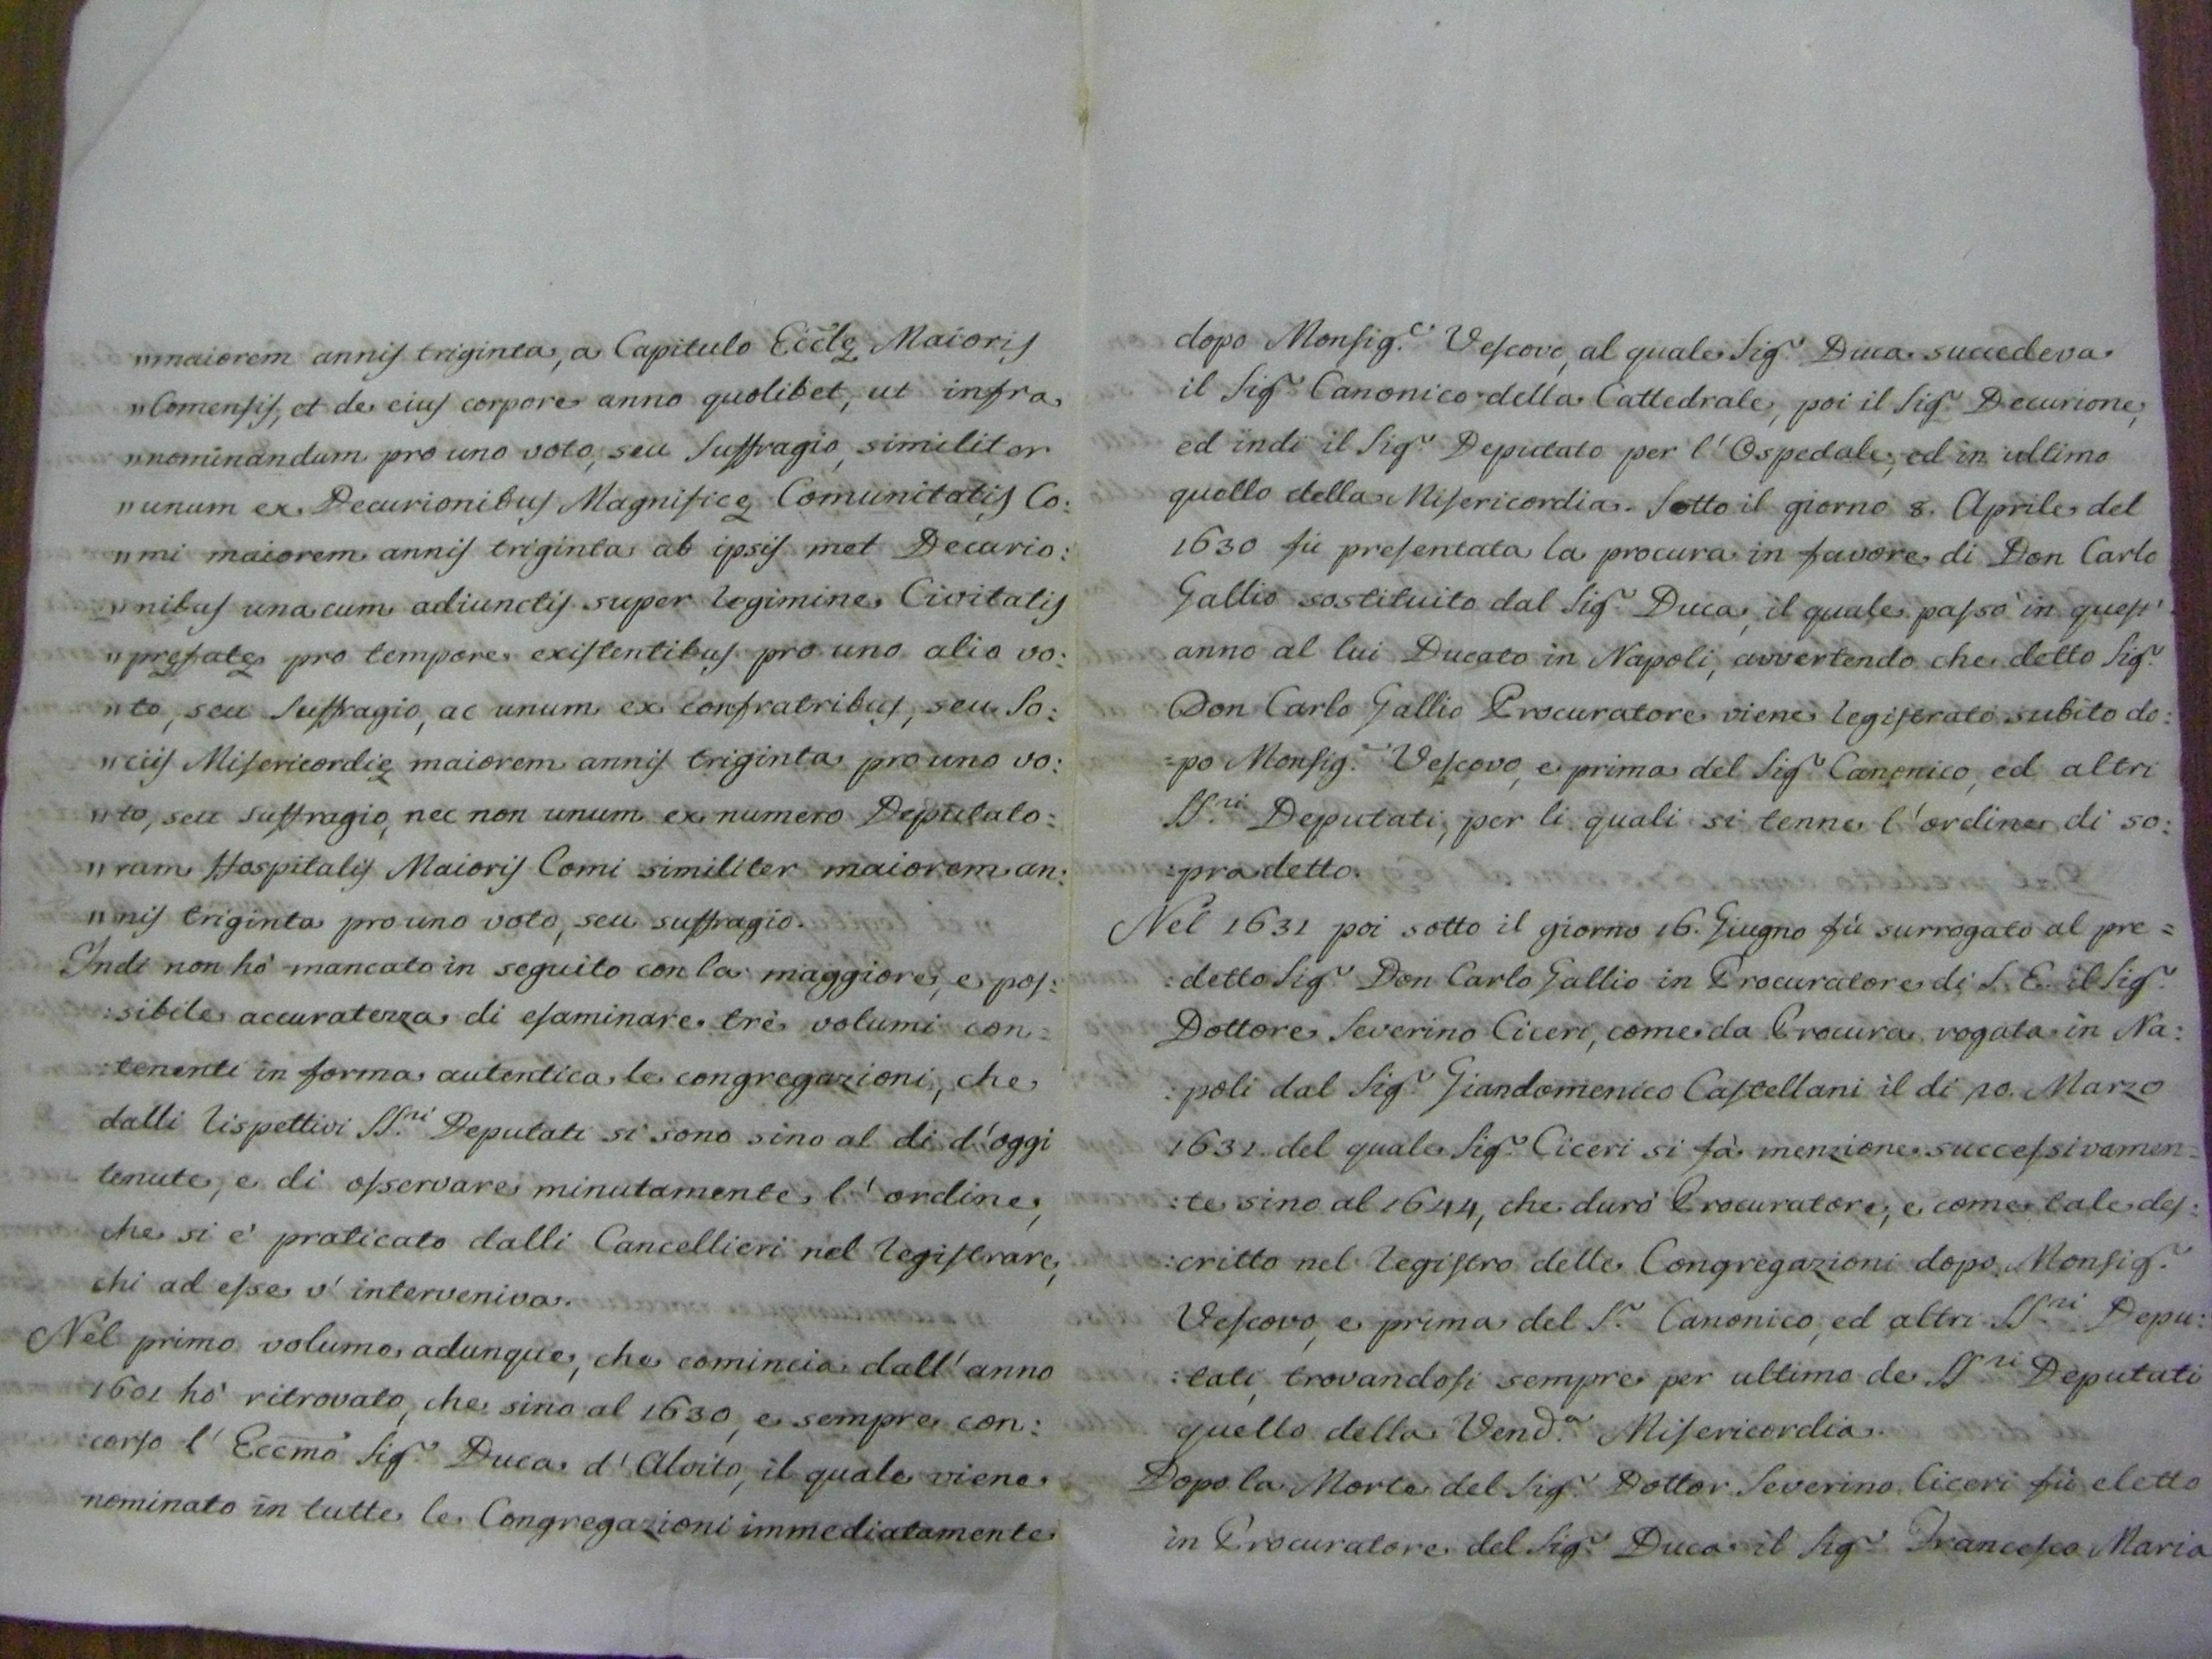 "maiorem annis triginta, a Capitulo Ecclę Maioris
"Comensis, et de eius corpore anno quolibet, ut infra
"nominandum pro uno voto, seu Suffragio, similiter
"unum ex Decurionibus Magnificę Comunitatis Co:
"mi maiorem annis triginta ab ipsis met Decurio:
"nibus una cum adiunctis super regimine Civitatis
"pręfatę pro tempore existentibus pro uno alio vo:
"to, seu Suffragio, ac unum ex confratribus, seu So:
"ciis Misericordię maiorem annis triginta pro uno vo:
"to, seu suffragio, nec non unum ex numero Deputato:
"rum Hospitalis Maioris Comi similiter maiorem an:
"nis triginta pro uno voto, seu suffragio.
Indi non hò mancato in seguito con la maggiore, e pos:
:sibile accuratezza di esaminare trè volumi con:
:tenenti in forma autentica le congregazioni, che
dalli rispettivi SS.ri Deputati si sono sino al di d'oggi
tenute, e di osservare minutamente l'ordine,
che si è praticato dalli Cancellieri nel registrare,
chi ad esse v'interveniva.
Nel primo volume adunque, che comincia dall'anno
1601 hò ritrovato, che sino al 1630, e sempre con:
:corso l'Eccmo Sig.r Duca d'Alvito, il quale viene
nominato in tutte le Congregazioni immediatamente
dopo Monsig.r Vescovo, al quale Sig.r Duca succedeva
il Sig.r Canonico della Cattedrale, poi il Sig.r Decurione,
ed indi il Sig.r Deputato per l'Ospedale, ed in ultimo
quello della Misericordia. Sotto il giorno 8. Aprile del
1630 fù presentata la procura in favore di Don Carlo
Gallio sostituito dal Sig.r Duca, il quale passò in quest'
anno al lui Ducato in Napoli, avvertendo che detto Sig.r
Don Carlo Gallio Procuratore viene registrato subito do:
:po Monsig.r Vescovo, e prima del Sig.r Canonico, ed altri
SS.ri Deputati, per li quali si tenne l'ordine di so:
:pra detto.
Nel 1631 poi sotto il giorno 16. Giugno fù surrogato al pre=
:detto Sig.r Don Carlo Gallio in Procuratore di S. E. il Sig.r
Dottore Severino Ciceri, come da Procura rogata in Na:
:poli dal Sig.r Giandomenico Castellani il di 20. Marzo
1631. del quale Sig.r Ciceri si fà menzione successivamen:
:te sino al 1644, che durò Procuratore, e come tale des:
:critto nel registro delle Congregazioni dopo Monsig.r
Vescovo, e prima del S.r Canonico, ed altri SS.ri Depu:
:tati, trovandosi sempre per ultimo de SS.ri Deputati
quello della Vend.a Misericordia.
Dopo la Morte del Sig.r Dottor Severino Ciceri fù eletto
in Procuratore del Sig.r Duca il Sig.r Francesco Maria